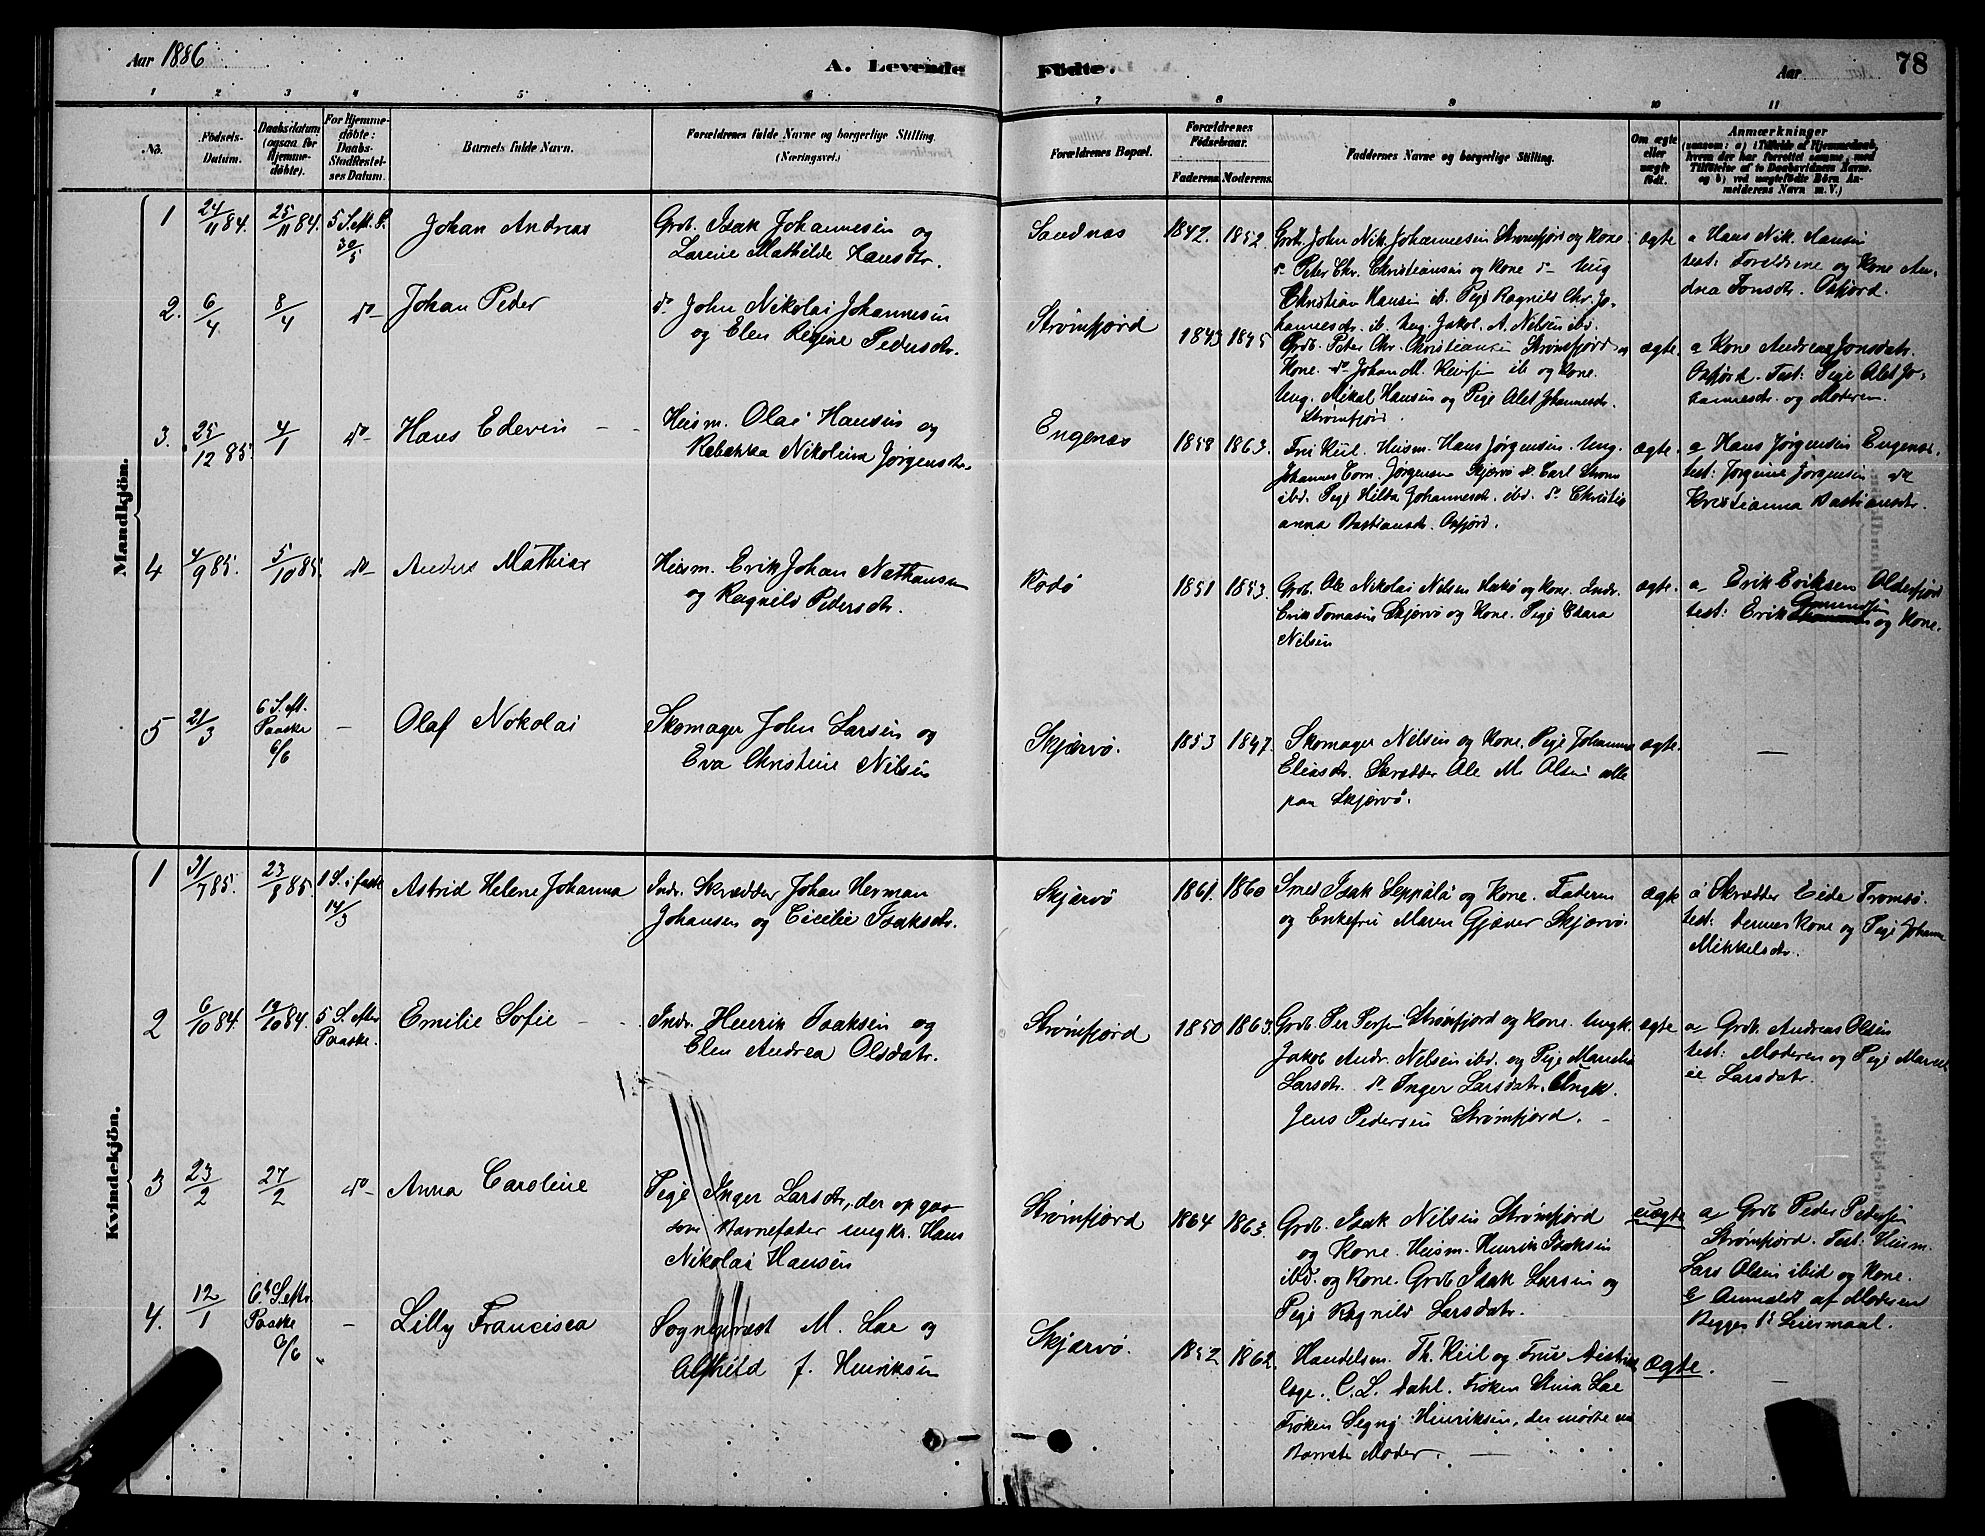 Aar 1886
A. Levende Födte.
Aar
78
1 2 3 4 5 6 7 8 9 10 11
No.
Födsels-
Datum.
Daabsdatum
(ogsaa for
Hjemme-
døbte).
For Hjemme-
døbte:
Daabs-
Stadfæstel-
ses Datum.
Barnets fulde Navn.
Forældrenes fulde Navne og borgerlige Stilling.
(Næringsvei.)
Forældrenes Bopæl.
Forældrenes
Födselsaar.
Faderens. Moderens.
Faddernes Navne og borgerlige Stilling.
Om ægte
eller
uægte
födt.
Anmærkninger
(saasom: a) i Tilfælde af Hjemmedaab,
hvem der har forrettet samme, med
Tilföielse af to Daabsvidners Navne.
og b) ved uægtefödte Börn An-
melderens Navn m. V.)
Mandkjön.
1
24/11 84.
25/11 84.
5 S. eft. P.
30/5
Johan Andreas
Grdb. Isak Johannesen og
Larene Mathilde Hansdtr.
Sandnæs
1842. 1852.
Grdb. John Nik. Johannesen Strømfjord og Kone.
do Peter Chr. Christiansen og Kone do Ung
Christian Hansen ib. Pige Ragnild Chr. Jo-
hannesdtr. ib. Ung. Jakob A. Nilsen ibd.
ægte
a Hans Nik. Hansen
test: Foreldrene og Kone An-
drea Jonsdtr. Oxfjord.
2.
6/4
8/4
do
Johan Peder
do John Nikolai Johannesen
og Elen Regine Pedersdtr.
Strømfjord
1843 1845
Grdb. Peter Chr. Christiansen Strømfjord og
Kone. do Johan M. ib og Kone.
Ung. Mikal Hansen og Pige Alet Johannesdtr.
Strømfjord.
ægte.
a Kone Andrea Jonsdatr.
Oxfjord. Test: Pige Alet Jo-
hannesdtr. og Moderen.
3.
25/12 85
4/1
do
Hans Edevin
Husm. Olai Hansen og
Rebekka Nikoline Jørgensdtr.
Engenæs
1858 1863.
Fru Kiil. Husm. Hans Jørgensen. Ung.
Johannes Corn. Jørgensen Skjervø do Carl Strøm
ibd. Pige Hilda Johannesdtr. ibd. do Christi-
anna Bastiansdtr. Oxfjord.
ægte.
a Hans Jørgensen Engenæs.
test: Jørgine Jørgensen og
Kristianna Bastiansdtr.
4
4/9 85.
5/10 85.
do
Anders Mathias
Husm. Erik Johan Nathansen
og Ragnild Pedersdtr.
Rødø
1851 1853.
Grdb. Ole Nikolai Nilsen og Kone. Indr.
Erik Tomasen Skjervø og Kone. Pige Clara
Nilsen
ægte.
a Erik Eriksen Olderfjord
test: Erik og Kone.
5
21/3
6 S. eft.
Paaske
6/6
Olaf Nokolai
Skomager John Larsen og
Eva Christine Nilsen
Skjærvø.
1853 1847.
Skomager Nilsen og Kone. Pige Johanna
Eliasdtr. Skrædder Ole M. Olsen alle
paa Skjervø.
ægte.
Kvindekjön.
1
31/7 85.
23/8 85
1 S. i faste
14/3
Astrid Helene Johanna
Indr. Skrædder Johan Herman
Johansen og Cicilie Isaksdtr.
Skjærvø
1861. 1860
Smed Isak Seppälä og Kone. Faderen
og Enkefru Maren Gjæver Skjærvø.
ægte
a Skrædder Eide Tromsø.
test: Dennes Kone og Pige Johanna
Mikkelsdtr.
2
6/10 84.
19/10 84.
5 S. efter
Paaske.
Emilie Sofie
Indr. Henrik Isaksen og
Elen Andrea Olsdatr.
Strømfjord
1850 1863.
Grdb. Per Persen Strømfjord og Kone. Ungk.
Jakob Andr. Nilsen ibd. og Pige
Larsdtr. do Inger Larsdatr. Ungk.
Jens Pedersen Strømfjord.
ægte
a Grdb. Andreas Olsen
test: Moderen og Pige
Larsdatr.
3
23/2
27/2
do
Anna Caroline
Pige Inger Larsdtr., der opgav
som Barnefader ungkr. Hans
Nikolai Hansen
Strømfjord
1864 1863.
Grdb. Isak Nilsen Strømfjord
og Kone. Husm. Henrik Isaksen
ibd. og Kone. Grdb Isak Larsen og
Pige Ragnild Larsdatr.
uægte
a Grdb Peder Pedersen
Strømfjord. Test: Husm.
Lars Olsen ibid og Kone.
b Anmeldt af Moderen
Begges 1ste Leiermaal.
4.
12/1
6te S. eftr.
Paaske
6/6
Lilly Francisca
Sogneprest M. Lae og
Alfhild f. Henriksen
Skjærvø.
1852 1862.
Handelsm. Th. Kiil og Frue
læge. C. L. Dahl. Frøken Stina Lae
Frøken Henriksen, der mødte
Barnets Moder.
ægte.